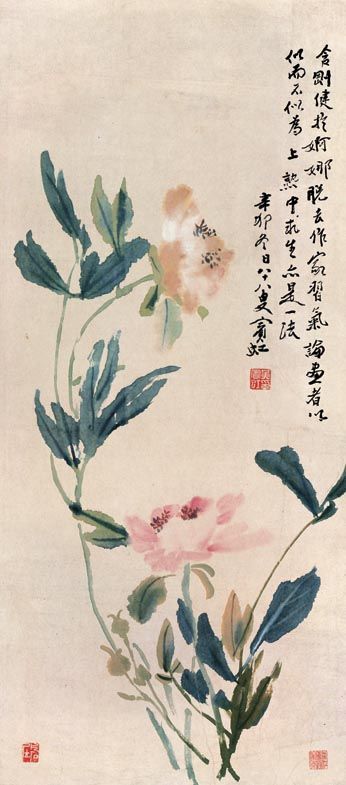 含剛健於婀娜脫去作家習氣論畫者以
似而不似為上熟中求生亦是一法
辛卯冬日八十八叟賓虹